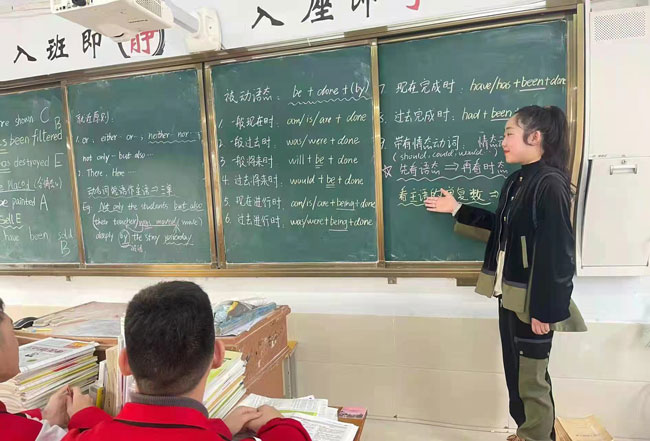 入班即(静)
入座即
re shown C
B
s been filtered
destroyed E
painted A
have been sold
B
就近原则:
1. or, either…or…, neither…nor…
not only…but also…
2. There, Here…
Eg. Not only the students but also
their teacher
deeply by the story yesterday.
被动语态: be + done + (by)
1. 一般现在时: am/is/are + done
2. 一般过去时: was/were + done
3. 一般将来时: will + be + done
4. 过去将来时: would + be + done
5. 现在进行时: am/is/are + being + done
6. 过去进行时: was/were + being + done
7. 现在完成时: have/has + been + done
8. 过去完成时: had + been
9. 带有情态动词: 情态
(should, could, would
☆ 先看语态 ⇒ 再看时态
看主语的单复数 ⇒